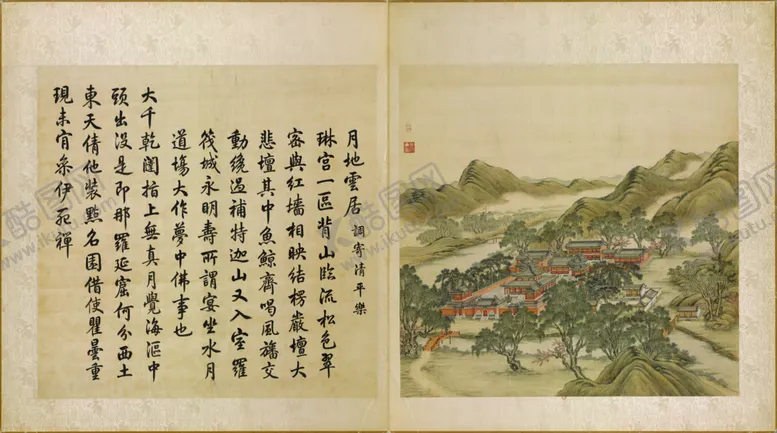 月地雲居 調寄清平樂
琳宫一區背山臨流松色翠
密與紅墻相映結楞嚴壇大
悲壇其中魚鯨齊喝風旛交
動繞過補特迦山又入室羅
筏城永明壽所謂宴坐水月
道場大作夢中佛事也
大千乾闥指上無真月覺海漚中
頭出没是即那羅延窟何分西土
東天倩他裝點名園借使瞿曇重
現未肯參伊死禪